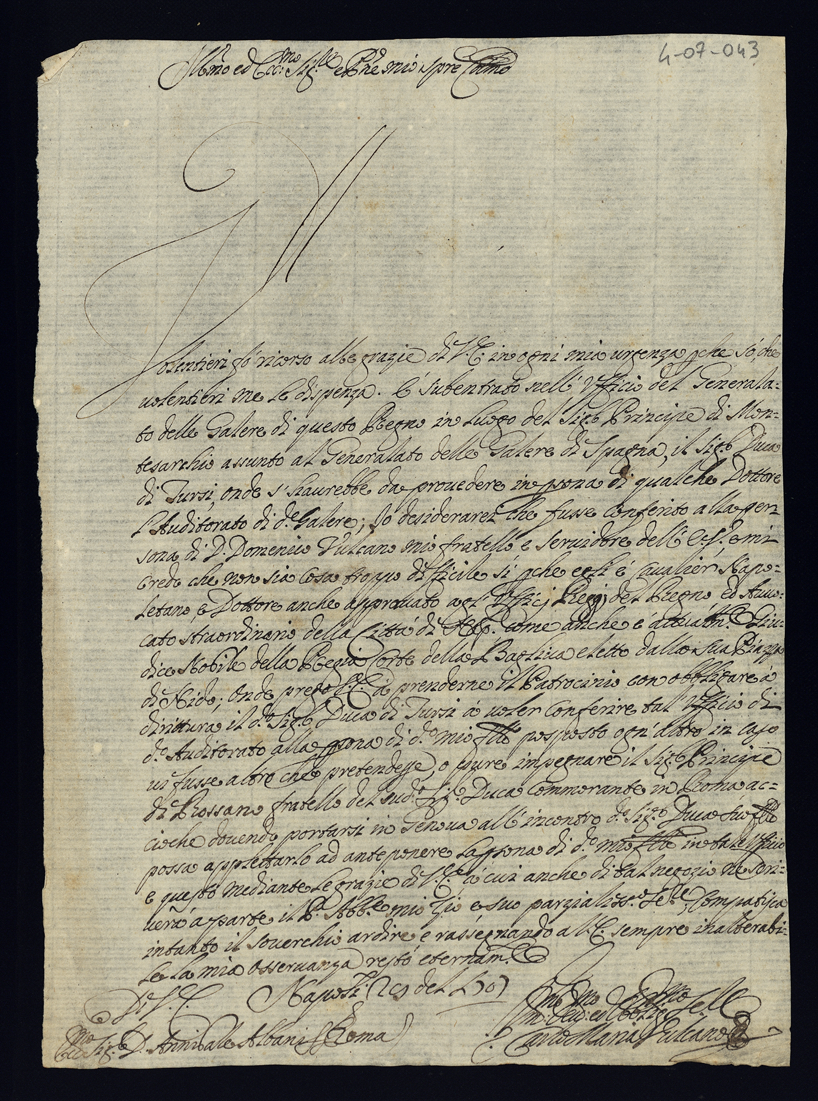 4-07-043
Ill.mo ed Ecc.mo Sig.re e P.rone mio Spre Col.mo
Volentieri fò ricorso alle grazie di V.E. in ogni mia urgenza pche sò, che
volentieri me le dispenza. È subentrato nell' Ufficio del Generala-
to delle Galere di questo Regno in luogo del Sig.r Principe di Mon-
tesarchio assunto al Generalato delle Galere di Spagna, il Sig.r Duca
di Tursi, onde s'haurebbe da provedere in psona di qualche Dottore
l'Auditorato di d.e Galere; Io desiderarei che fusse conferito alla per
sona di D. Domenico Vulcano mio fratello e servidore dell' E.S. e mi
credo che non sia cosa troppo difficile sì pche egli è Cavalier Napo-
letano, e Dottore anche approvato agl' Ufficij Reggij del Regno ed Auvo-
cato straordinario della Città di Nap. come anche è Giu-
dice Nobile della Regia Corte della Bagliva eletto dalla sua Piazza
di Nido; Onde prego V.E. à prenderne il Patrocinio con obbligare à
dirittura il d.o Sig.r Duca di Tursi à voler conferire tal Ufficio di
d.o Auditorato alla psona di d.o mio fllo posposto ogn'altro in caso
vi fusse altro che pretendesse, o pure impegnare il Sig.r Principe
di Rossano fratello del sud.o Sig.r Duca commorante in Roma ac-
ciochè dovendo portarsi in Genova all'incontro d.o Sig.r Duca suo fllo
possa appuntarlo ad anteponere la psona di d.o mio fllo in tale Ufficio
e questo mediante le grazie di V.E. à cui anche di tal negozio ne scri-
verà à parte il P. Abb.e mio Zio e suo parzialiss.o Se.re, Compatisca
intanto il soverchio ardire e rassegnando a V.E. sempre inalterabi-
le la mia osservanza resto eternam.te
Di V.E. Napoli del 1707
Ecc.mo Sig.r D. Annibale Albani (Roma)
Dev.mo ed Obblig.mo Se.re
Carlo Maria Vulcano